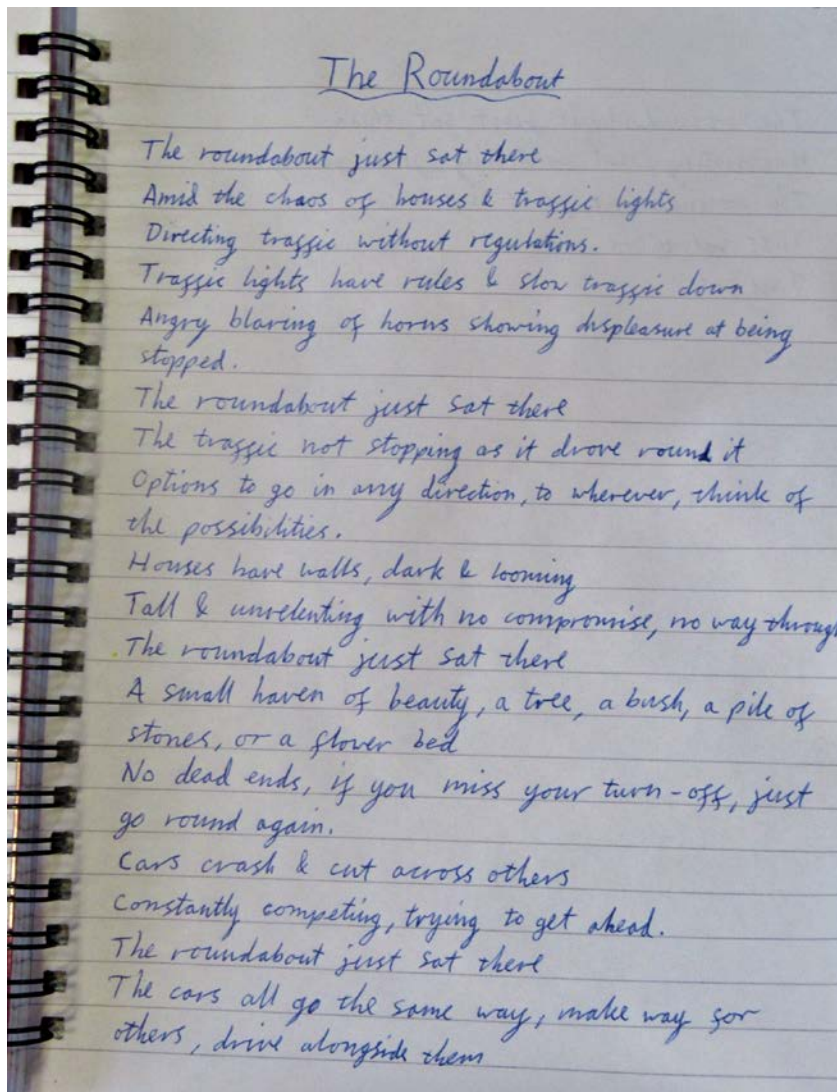 The Roundabout
The roundabout just sat there
Amid the chaos of houses & traffic lights
Directing traffic without regulations.
Traffic lights have rules & slow traffic down
Angry blaring of horns showing displeasure at being
stopped.
The roundabout just sat there
The traffic not stopping as it drove round it
Options to go in any direction, to wherever, think of
the possibilities.
Houses have walls, dark & looming
Tall & unrelenting with no compromise, no way through
The roundabout just sat there
A small haven of beauty, a tree, a bush, a pile of
stones, or a flower bed
No dead ends, if you miss your turn-off, just
go round again.
Cars crash & cut across others
Constantly competing, trying to get ahead.
The roundabout just sat there
The cars all go the same way, make way for
others, drive alongside them